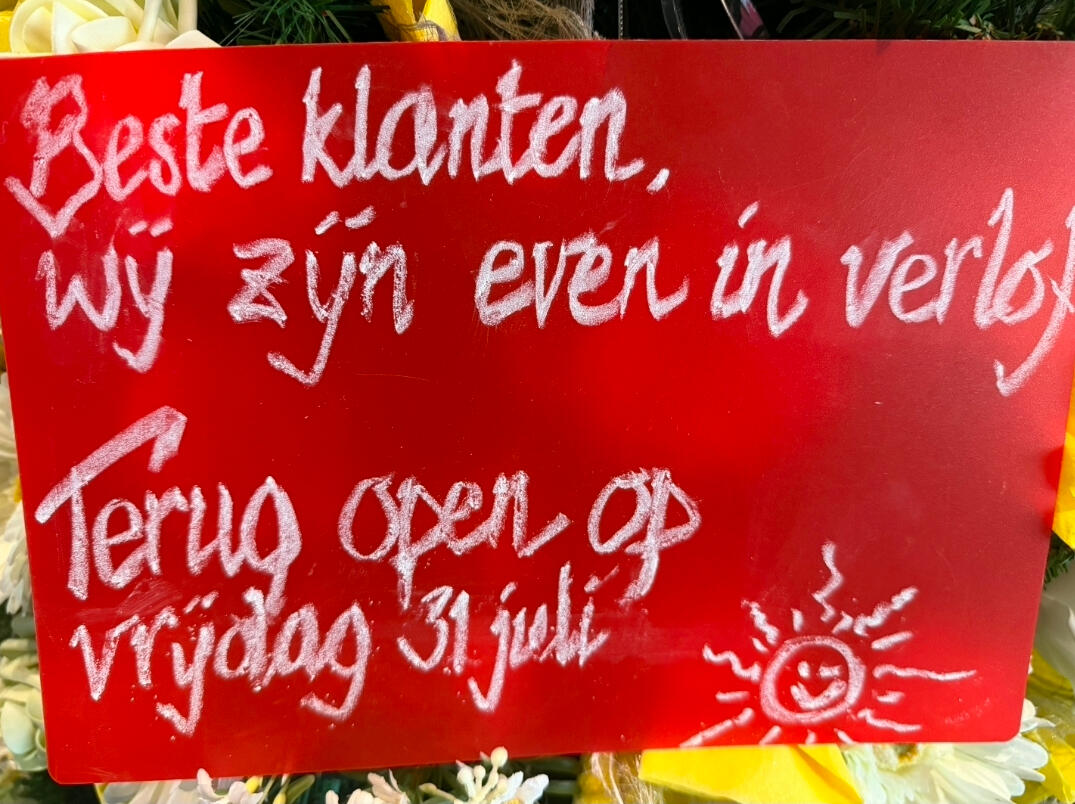 Beste klanten,
wij zijn even in verlof
Terug open op
vrijdag 31 juli